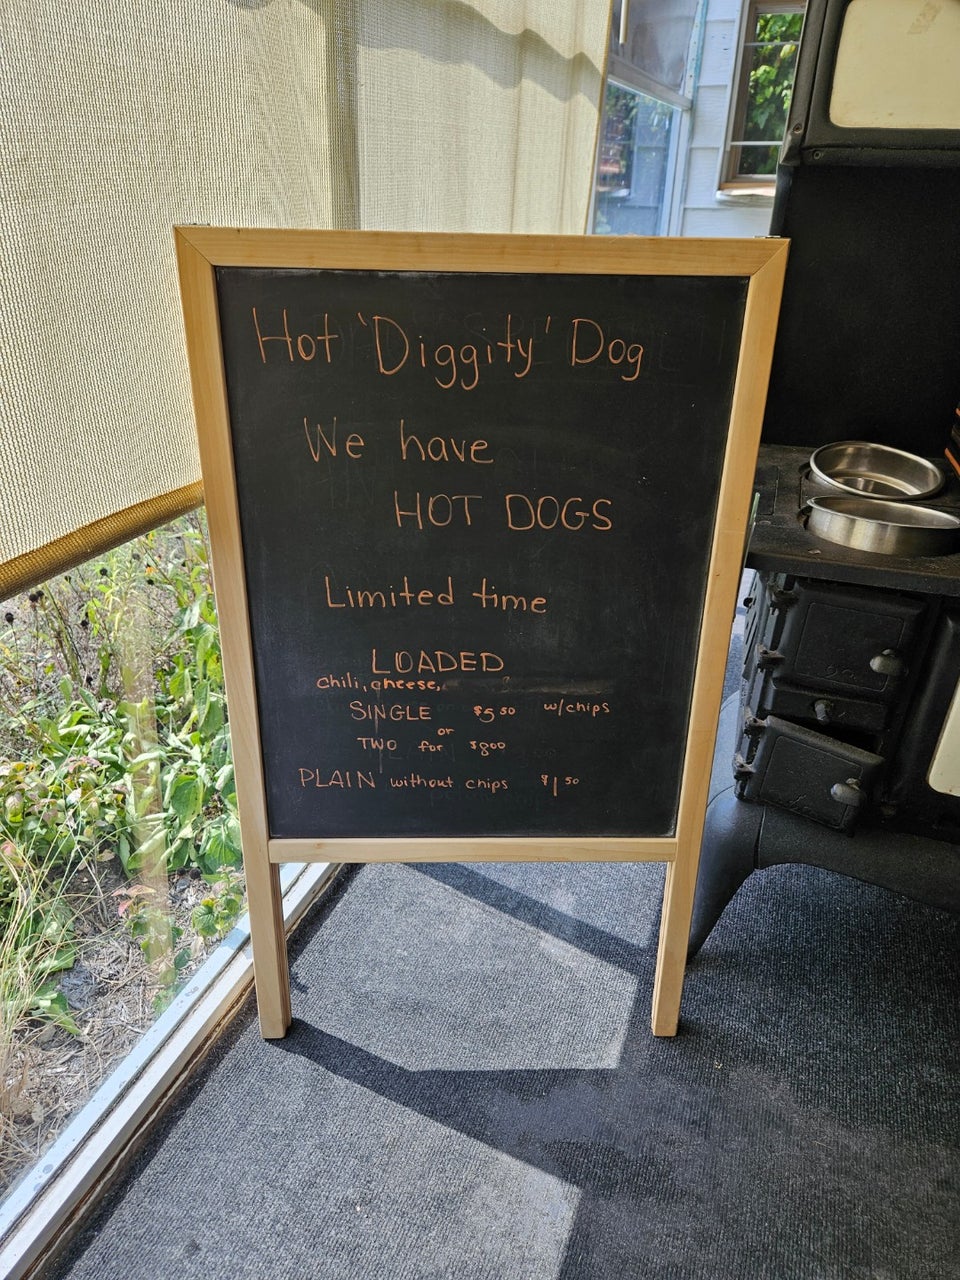 Hot 'Diggity' Dog
We have
HOT DOGS
Limited time
LOADED
chili, cheese,
SINGLE $5 50 w/chips
or
TWO for $8 00
PLAIN without chips $1 50